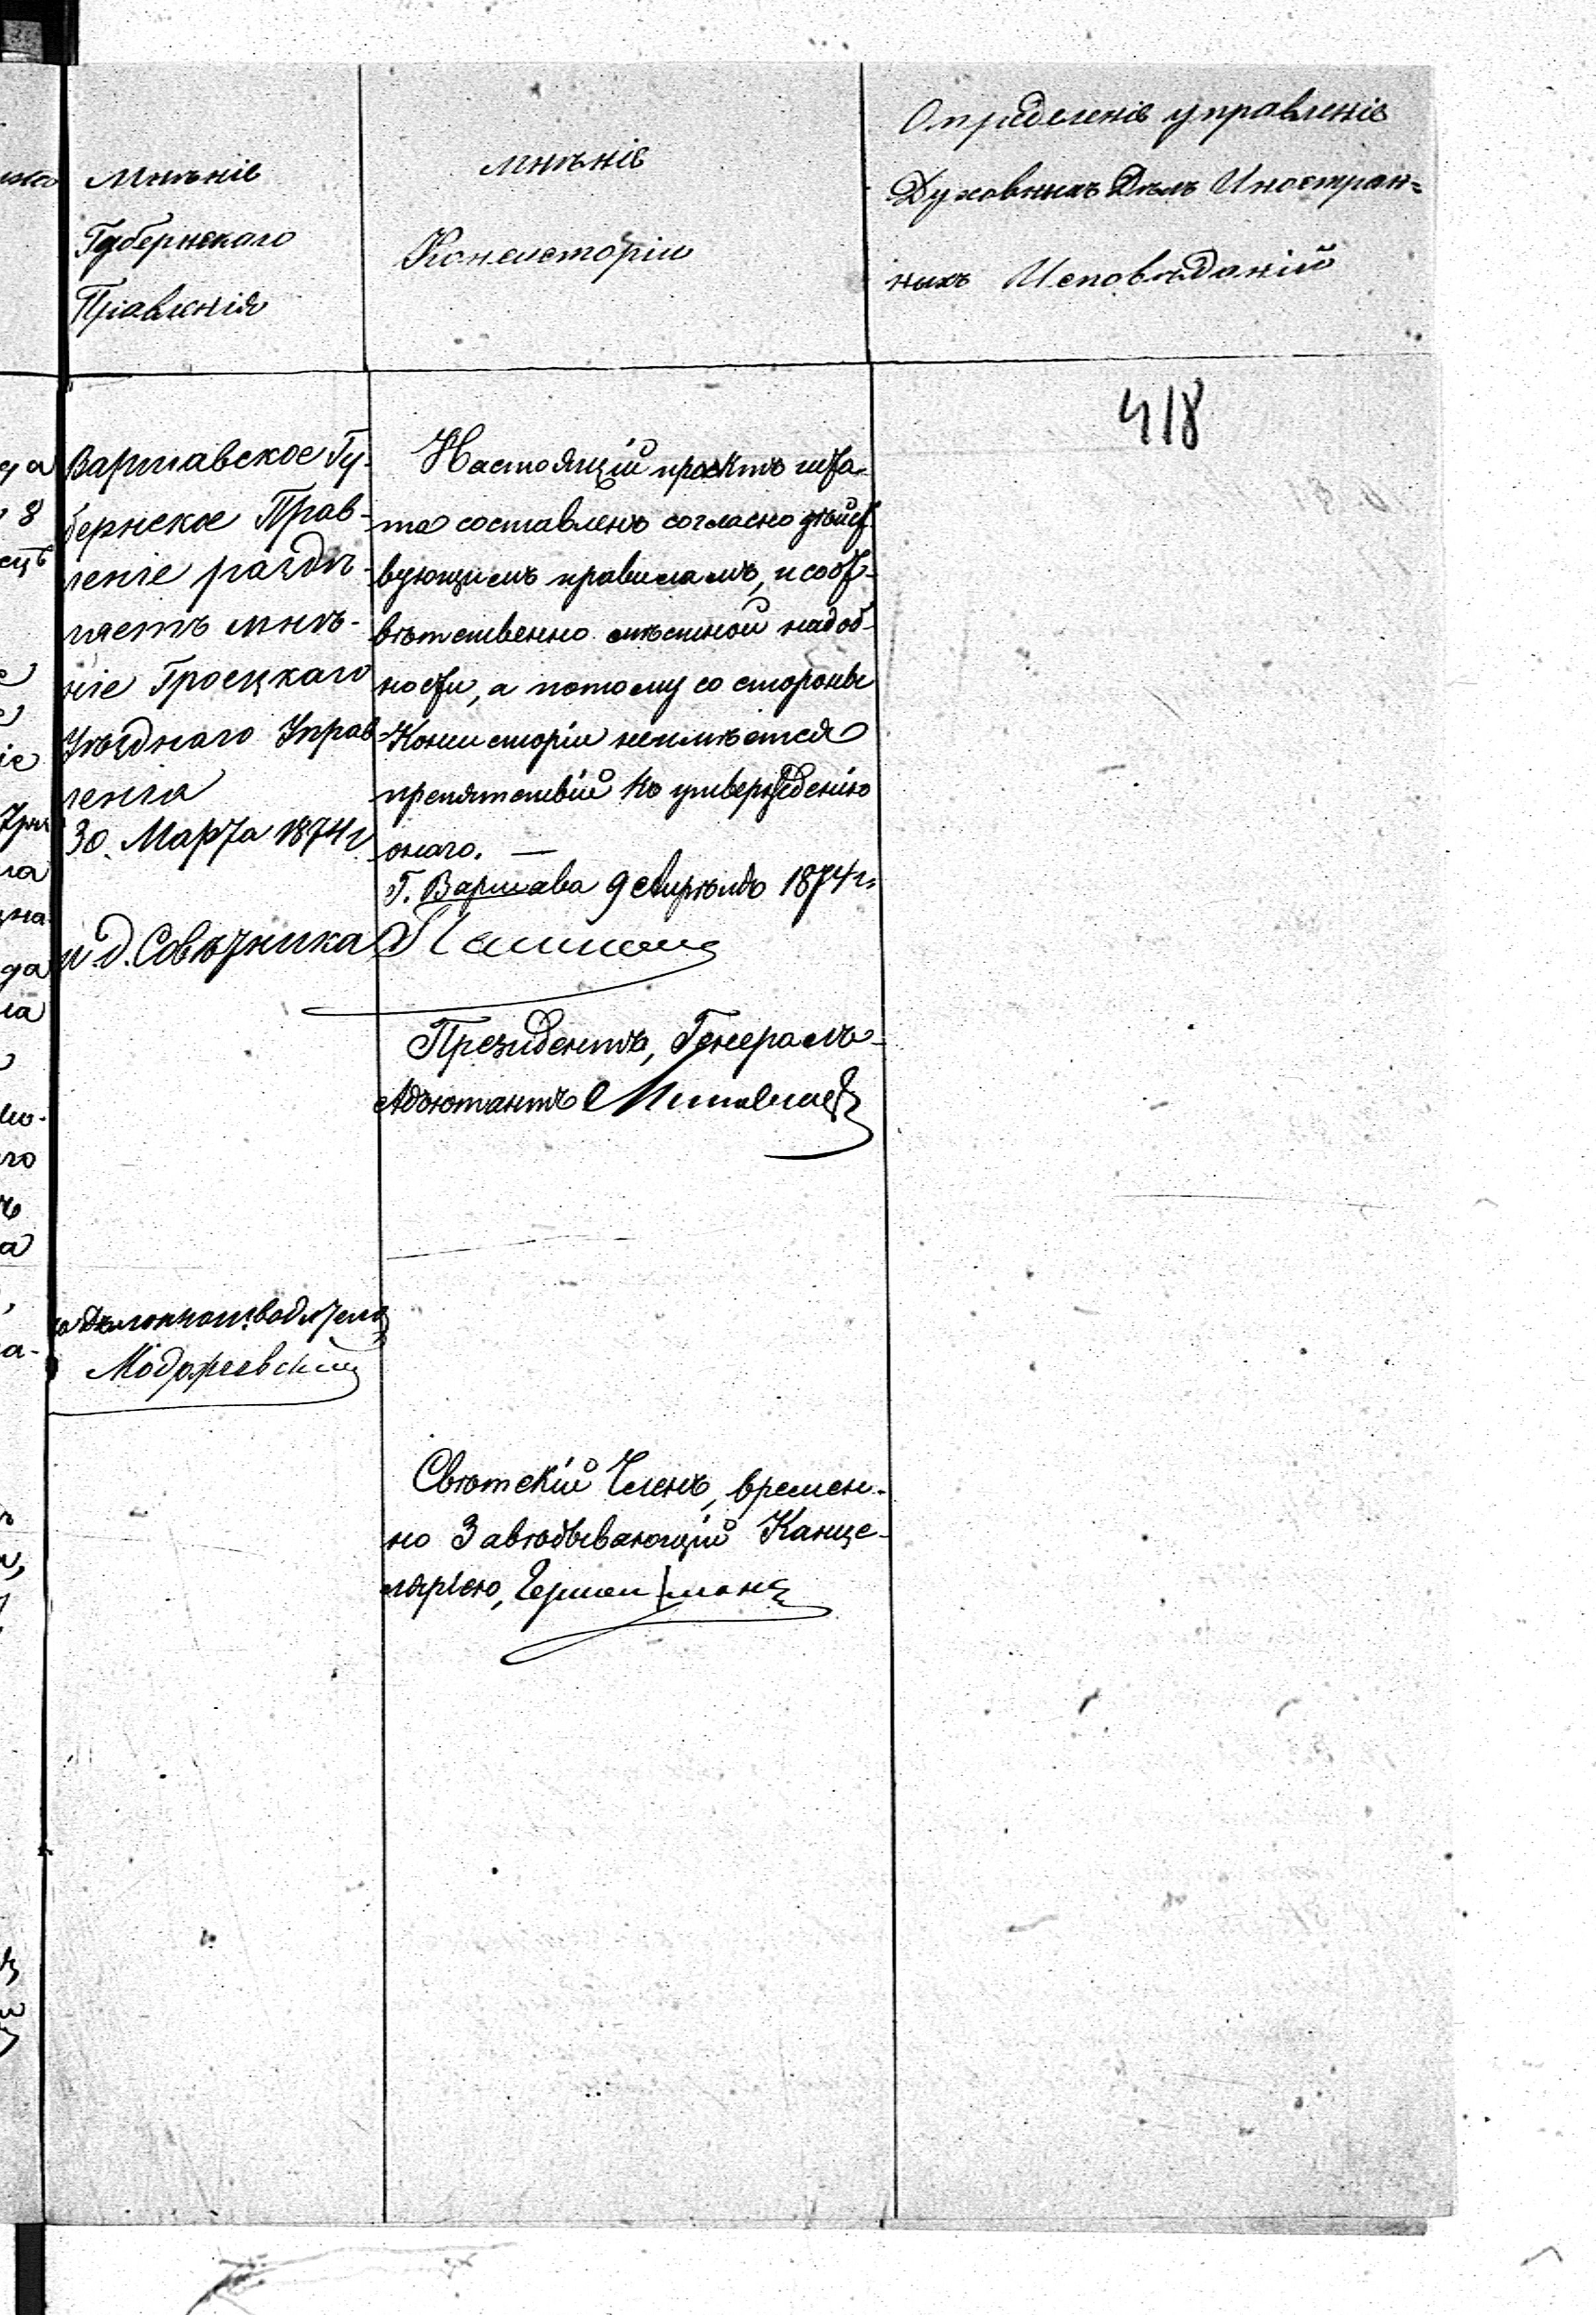 Мнѣніе
Губернскаго
Правленія
Мнѣніе
Консисторіи
Опредѣленіе управленіе
Духовныхъ Дѣлъ Иностран=
ныхъ Исповѣданій
418
Варшавское Гу-
бернское Прав-
леніе раздѣ-
ляетъ мнѣ-
ніе Гроецкаго
Уѣзднаго Управ-
ленія
30. Марта 1874 г
и. д. Совѣтника
Дѣлопроизводителя
Настоящій проэктъ шта-
та составленъ согласно дѣйст
вующимъ правиламъ, и соот-
вѣтственно мѣстной надоб-
ности, а потому со стороны
Консисторіи неимѣется
препятствій къ утвержденію
онаго. —
Г. Варшава 9 Апрѣля 1874 г.
Президентъ, Генералъ-
Адъютантъ
Свѣтскій Членъ, времен-
но Завѣдывающій Канце-
ляріею,